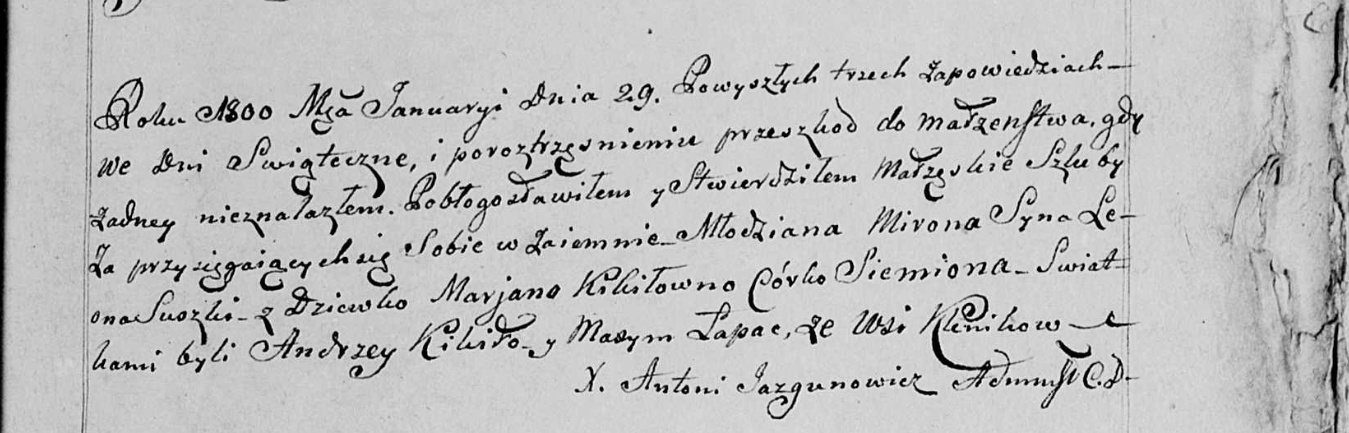 Roku 1800 Mca Januaryi Dnia 29. Powyszłych trzech Zapowiedziach
we Dni Swiąteczne, i poroztrzęsnieniu przeszkod do małzenstwa, gdy
Zadney nieznalazłem. Pobłogosławiłem y Stwierdziłem Małzęskie Szluby
Za przysięgaiących się Sobie w Zaiemnie Młodziana Mirona Syna Le-
ona Suszki z Dziewko Marjano Kikiłowno Córko Siemiona Swiat-
kami byli Andrzey Kikiło y Maxym Łapac, ze Wsi Klinikow
X. Antoni Jazgunowicz C. D.